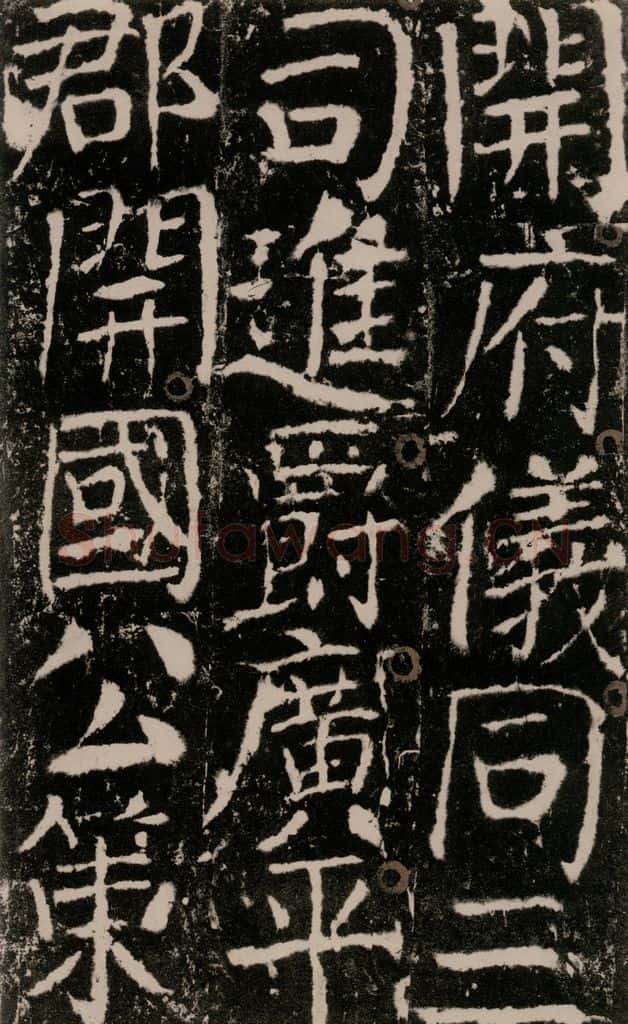 開府儀同三
司進爵廣平
郡開國公策
Shufawang.CN